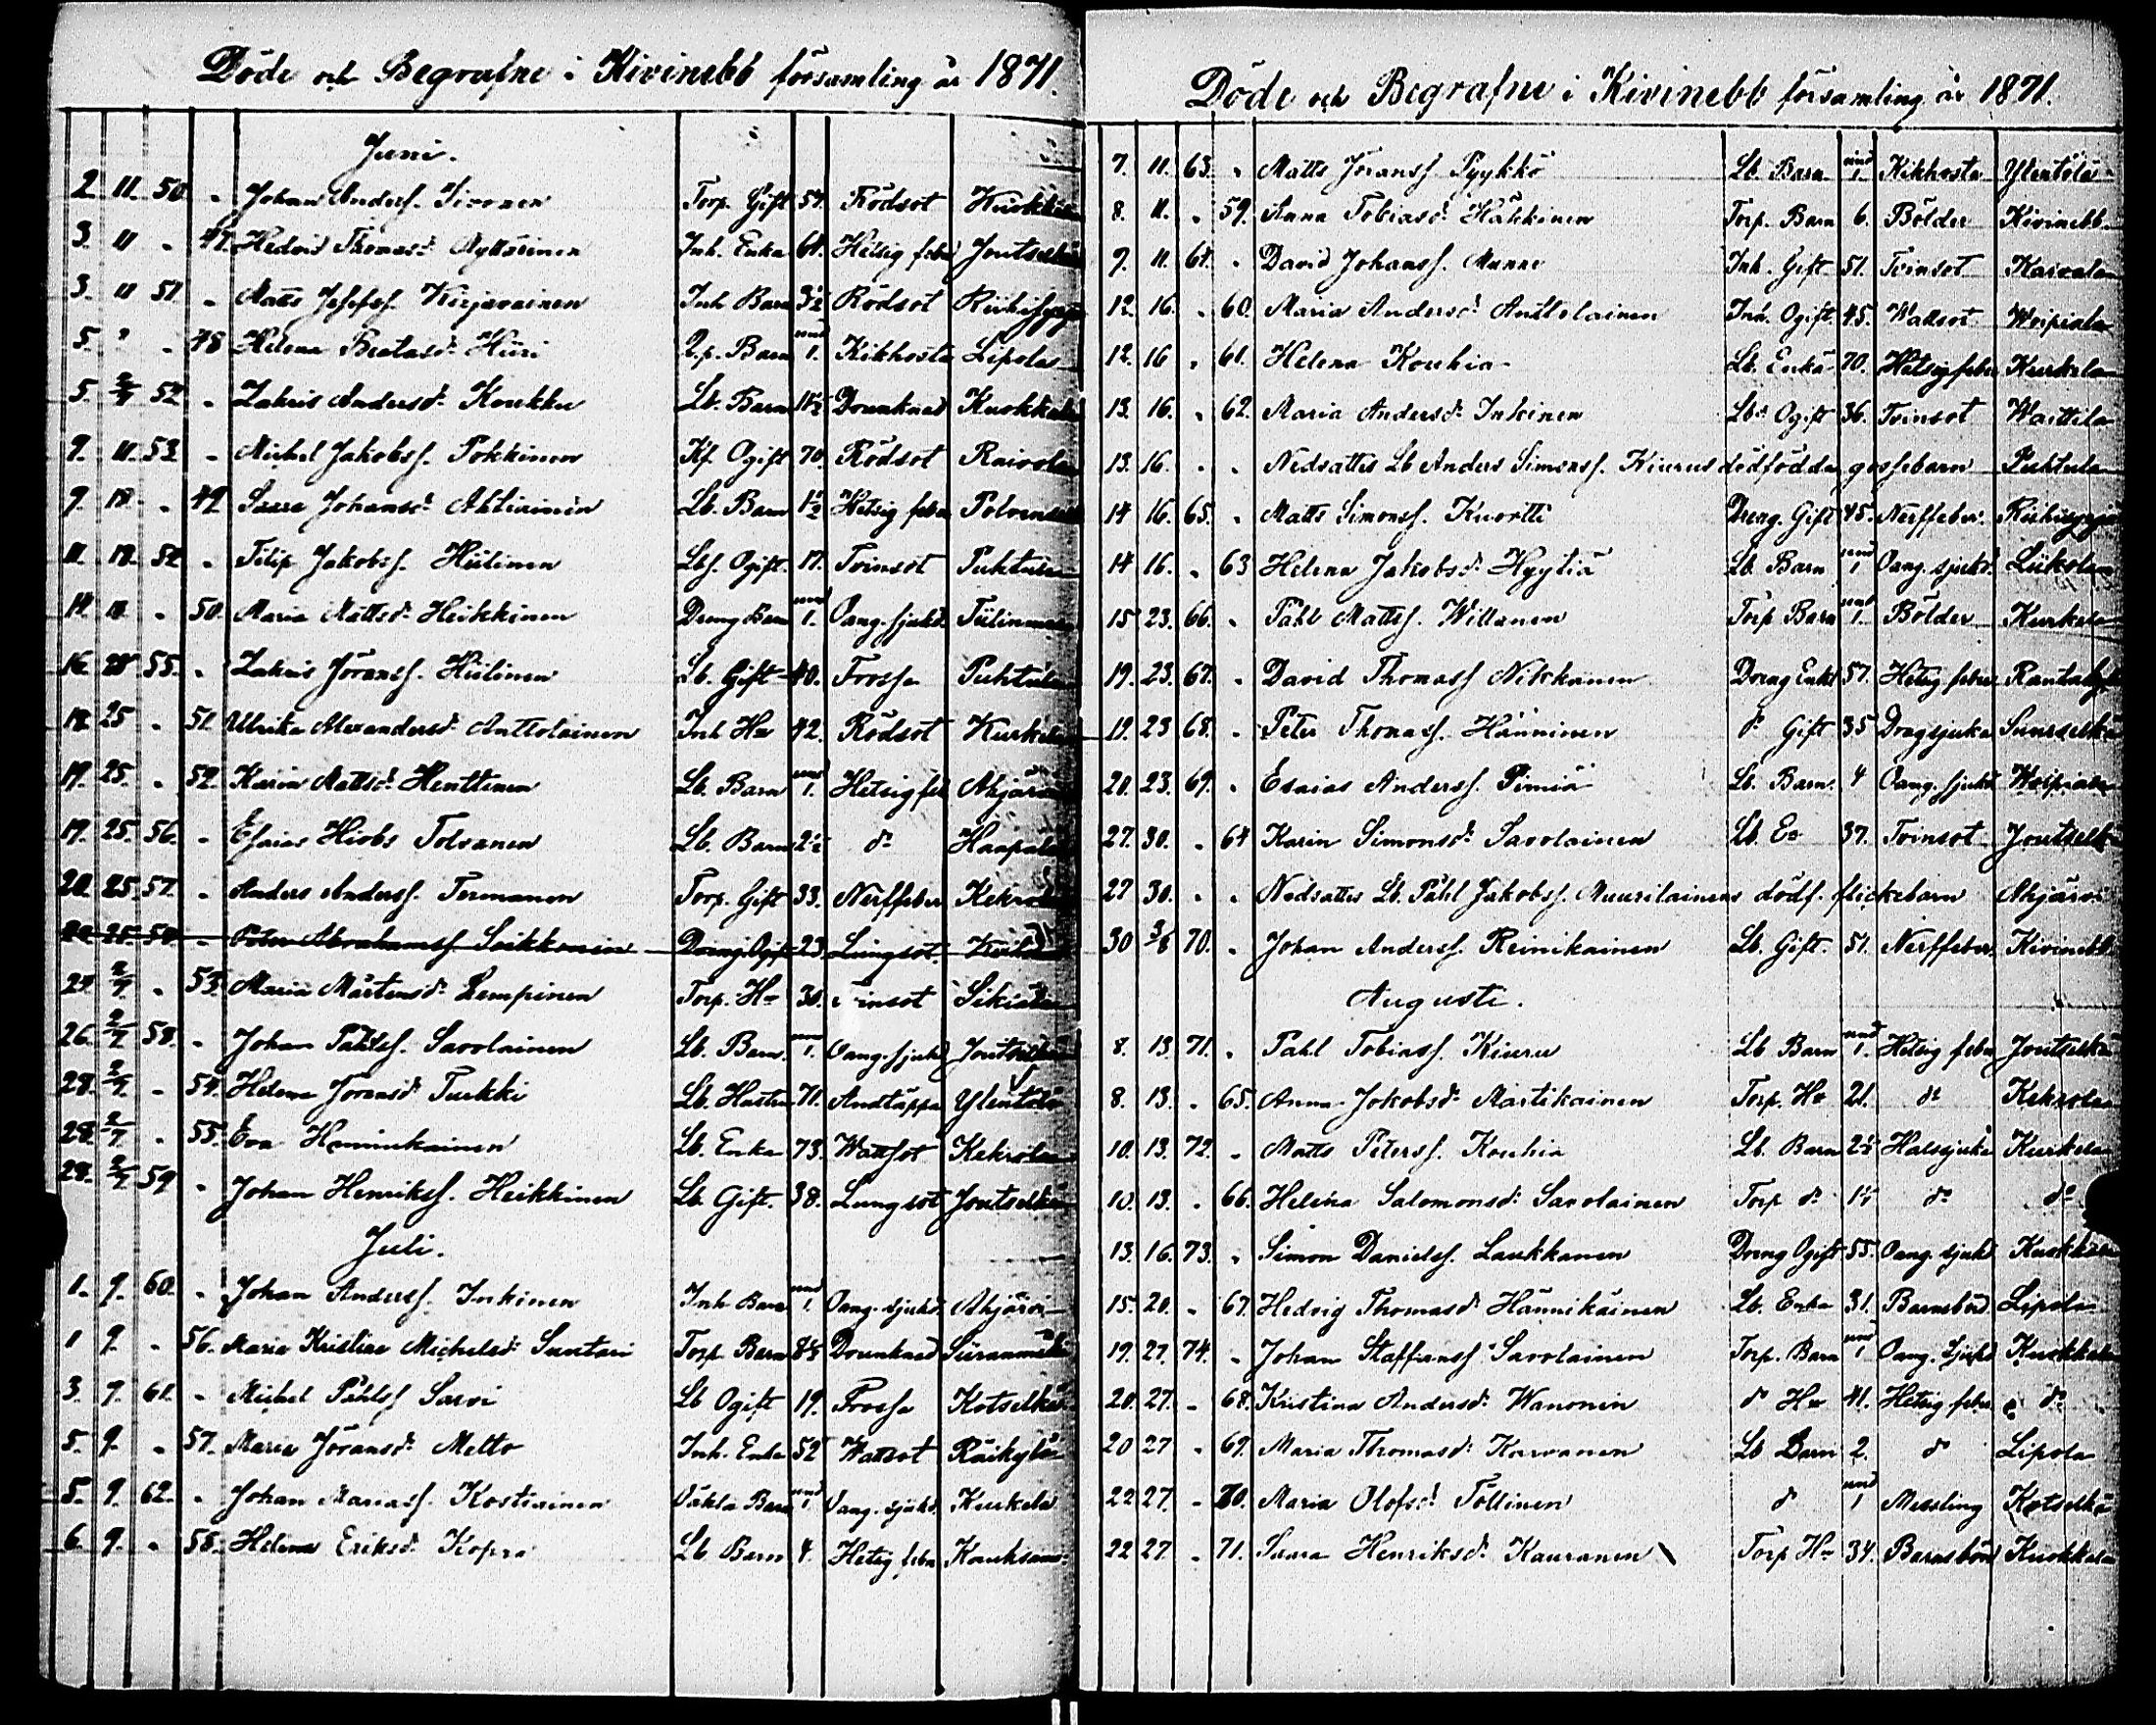 Döde och Begrafne i Kivinebb församling år 1871.
Juni.
2. 11. 50. " Johan Anders. Sironen Torp. Gift 54. Rödsot Kuokkala
3. 11 " 47. Hedvid Thomasd: Inh. Enka 61. Hetsig feber Joutselkä
3. 11 51 " Matts Josefss. Kirjavainen Inh Barn 3½ Rödsot Riihisyrjä
5. " " 48 Helena Beatasd: Hiiri Barn 1. Kikhosta Lipola
5. 2/7 52 " Zakris Andersd: Koukku Lb. Barn 11½ Drunknad Kuokkala
9. 11. 53. " Michel Jakobss. Pokkinen Kf. Ogift 70. Rödsot Raivola
9. 18. " 49 Saara Johansd: Ahtiainen Lb. Barn 1½ Hetsig feber Polvenselkä
11. 18. 54. " Filip Jakobss. Hiilinen Lbs. Ogift. 17. Tvinsot Puhtula
14. 18. " 50. Maria Mattsd: Heikkinen Dreng Barn mnd 1. Oang. sjukd. Tiilinmaa
16. 25 55. " Zakris Jöranss. Hiilinen Lb. Gift 40. Frossa Puhtula
18. 25 " 51. Ulrika Alexandersd: Anttolainen Inh Hu 42. Rödsot Kurkela
19. 25. " 52. Karin Mattsd: Henttinen Lb. Barn mnd 1. Hetsig feb Ahjärvi
19. 25. 56. " Esaias Hiobs Tolvanen Lb. Barn 2½ do Haapala
20. 25. 57. " Anders Anderss. Termanen Torp. Gift 33. Nerffeber Kekrola
20. 25. 58. " Peter Abrahamss. Soikkonen Dreng Ogift 23 Lungsot.
24. 2/7 " 53. Maria Mårtensd: Lempinen Torp. Hu 30. Tvinsot Sikiälä
26. 2/7 58. " Johan Påhlss. Savolainen Lb. Barn. mnd 1. Oang. sjukd Joutselkä
28. 2/7 " 54. Helena Joransd: Turkki Lb. Hustru 71. Andtäppa Ylentölä
28. 2/7 " 55. Eva Heminkainen Lb. Enka 73. Wattsot Kekrola
28. 2/7 59 " Johan Henrikss. Heikkinen Lb. Gift. 38. Lungsot Joutselkä
Juli.
1. 9. 60. " Johan Anderss. Inkinen Inh. Barn mnd 1. Oang. sjukd. Ahjärvi
1 9. " 56. Maria Kristina Michelsd: Suntari Torp. Barn 8½ Drunknad Siiranmäki
3. 9. 61. " Michel Påhlss Sarvi Lb Ogift 19. Frossa Kotselkä
5. 9. " 57. Maria Jöransd: Metto Inh. Enka 52 Wattsot Räikylä
5. 9. 62. " Johan Mariass. Kostiainen Barn mnd 1 Oang. sjukd. Kurkela
6. 9. " 58. Helena Eriksd: Kopra Lb Barn 4. Hetsig feber
Döde och Begrafne i Kivinebb församling år 1871.
7. 11. 63. " Matts Jöranss. Pyykkö Lb. Barn mnd 1. Kikhosta Ylentölä
8. 11. " 59. Anna Tobiasd: Häkkinen Torp. Barn 6. Bölder Kivinebb.
9. 11. 64. " David Johanss. Munne Inh. Gift 51. Tvinsot Kaivola
12. 16. " 60. Maria Andersd: Anttolainen Inh. Ogift. 45. Wattsot Weipiala
12. 16 " 61. Helena Kouhia Lb. Enka 70. Hetsig feber Kurkela
13. 16. " 62. Maria Andersd: Inkinen Lbd: Ogift 36. Tvinsot Waittila
13. 16. " " Nedsattes Lb Anders Simonss. Kiurus dödfödda gossebarn Puhtula
14 16. 65. " Matts Simonss. Kuortti Dreng. Gift 45. Nerffeber. Riihisyrjä
14 16. " 63 Helena Jakobsd: Hyytiä Lb. Barn mnd 1 Oang. sjukd. Liikola
15 23. 66. " Påhl Mattss. Willanen Torp Barn mnd 1. Bölder Kurkela
19. 23. 67. " David Thomass Nikkanen Dreng Enkl 57. Hetsig feber Rantakylä
19. 23 68. " Peter Thomass. Hänninen do Gift 35 Dragsjuka Suurselkä
20. 23. 69. " Esaias Anderss. Pimiä Lb. Barn. 4 Oang. sjukd Weipiala
27. 30. " 64 Karin Simonsd: Savolainen Lb. Ea 37. Tvinsot Joutselkä
27 30. " " Nedsattes Lb. Påhl Jakobss. Muurilainens dödf. flickebarn Ahjärvi
30 3/8 70. " Johan Anderss. Reinikainen Lb. Gift. 51. Nerffeber. Kivinebb
Augusti.
8. 13 71. " Pahl Tobiass. Kiuru Lb Barn mnd 1. Hetsig feber Joutselkä
8. 13. " 65. Anna Jakobsd: Martikainen Torp. Hu 21. do Kekrola
10. 13. 72. " Matts Peterss. Kouhia Lb. Barn 2½ Halssjuka Kurkela
10. 13. " 66. Helena Salomonsd: Savolainen Torp do 1½ do do
13. 16. 73. " Simon Danielss. Laukkanen Dreng Ogift 55. Oang. sjukd Kuokkala
15. 20. " 67. Hedvig Thomasd: Hännikäinen Lb. Enka 31. Barnsbörd Lipola
19. 27. 74. " Johan Staffanss Savolainen Torp. Barn mnd 1 Oang. Sjukd Kuokkala
20. 27. " 68. Kristina Andersd: Wanonen do Hu 41. Hetsig feber do
20 27 " 69. Maria Thomasd: Karvanen Lb Barn 2. do Lipola
22 27. " 70. Maria Olofsd: Töllinen do mnd 1 Messling Kotselkä
22 27. " 71. Saara Henriksd: Kauranen Torp Hu 34. Barnsbörd Kuokkala